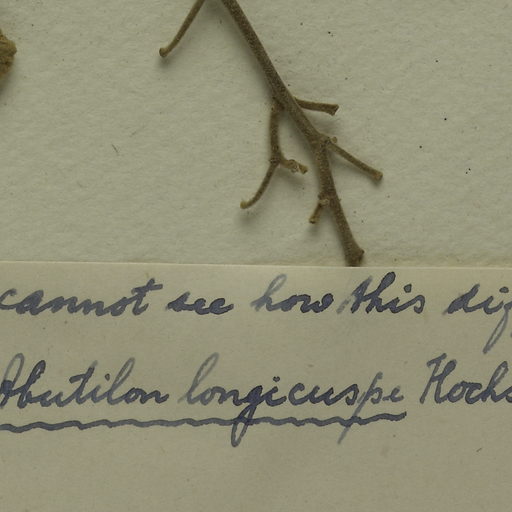 cannot see how this dif
Abutilon longicuspe Hochs